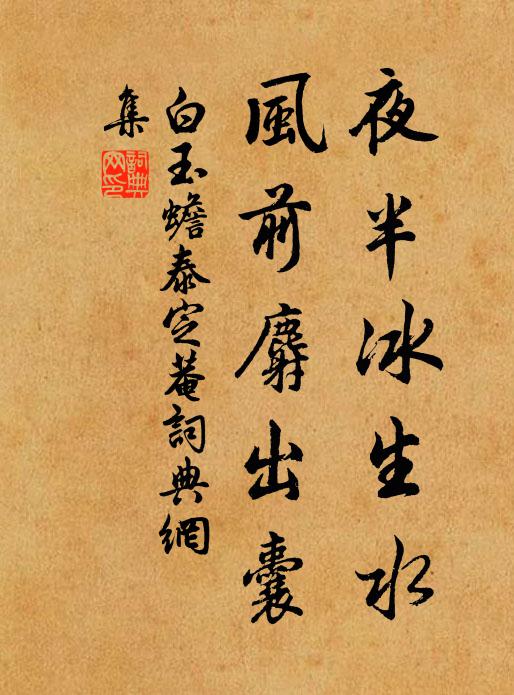 夜半冰生水
風前麝出囊
白玉蟾泰定菴詞典網
集
詞典
网印